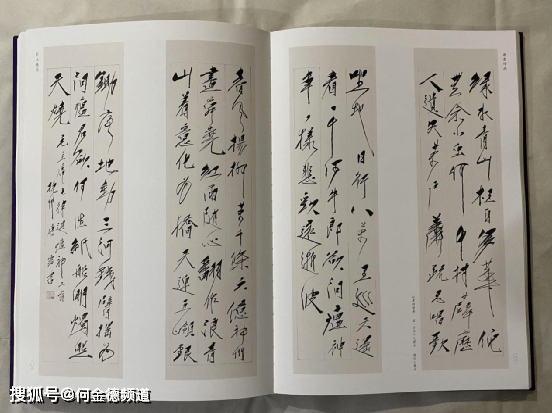 绿水青山枉自多華佗
无奈小虫何千村薜荔
人遗矢万户萧疏鬼唱歌
坐地日行八万里巡天遥
看一千河牛郎欲问瘟神
事一样悲歡逐逝波
春风杨柳万千条六億神州
盡舜尧红雨随心翻作浪青
山着意化为橋天连五嶺銀
锄落地动三河铁臂摇为
问瘟君欲何往纸船明燭照
天燒 毛主席七律送瘟神二首
搜狐号@何金德频道